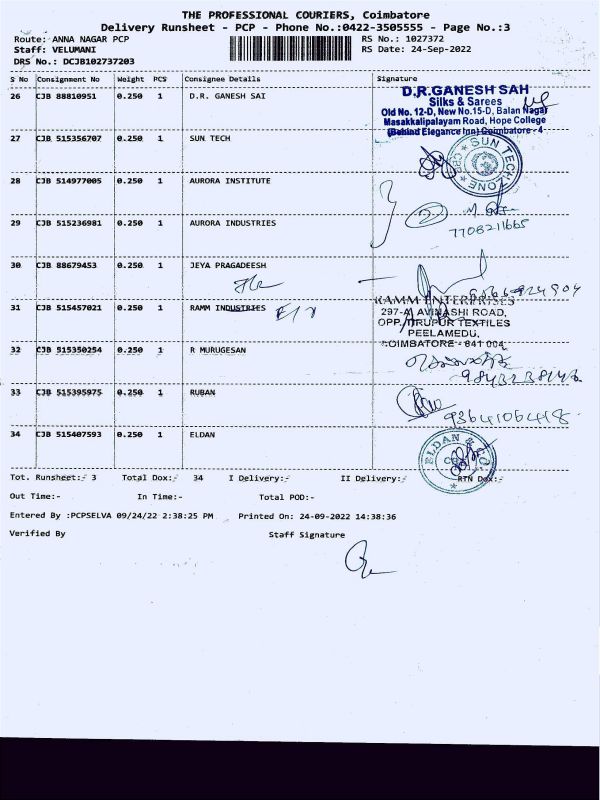 THE PROFESSIONAL COURIERS, Coimbatore
Delivery Runsheet - PCP - Phone No.:0422-3505555 - Page No.:3
Route: ANNA NAGAR PCP RS No.: 1027372
Staff: VELUMANI RS Date: 24-Sep-2022
DRS No.: DCJB102737203
S No Consignment No Weight PCS Consignee Details Signature
26 CJB 88810951 0.250 1 D.R. GANESH SAI
D.R.GANESH SAH
Silks & Sarees
Old No. 12-D, New No.15-D, Balan Nagar
Masakkalipalayam Road, Hope College
(Behind Elegance Inn) Coimbatore - 4
27 CJB 515356707 0.250 1 SUN TECH
SUN TECH ZONE
CBE
28 CJB 514977005 0.250 1 AURORA INSTITUTE
2
29 CJB 515236981 0.250 1 AURORA INDUSTRIES
7708211665
30 CJB 88679453 0.250 1 JEYA PRAGADEESH
31 CJB 515457021 0.250 1 RAMM INDUSTRIES
RAMM ENTERPRISES
297-A, AVINASHI ROAD,
OPP. TIRUPUR TEXTILES
PEELAMEDU,
COIMBATORE - 641 004.
32 CJB 515350254 0.250 1 R MURUGESAN
33 CJB 515395975 0.250 1 RUBAN
34 CJB 515407593 0.250 1 ELDAN
ELDAN & CO
Tot. Runsheet:- 3 Total Dox:- 34 I Delivery:- II Delivery:- RTN Dox:-
Out Time:- In Time:- Total POD:-
Entered By :PCPSELVA 09/24/22 2:38:25 PM Printed On: 24-09-2022 14:38:36
Verified By Staff Signature